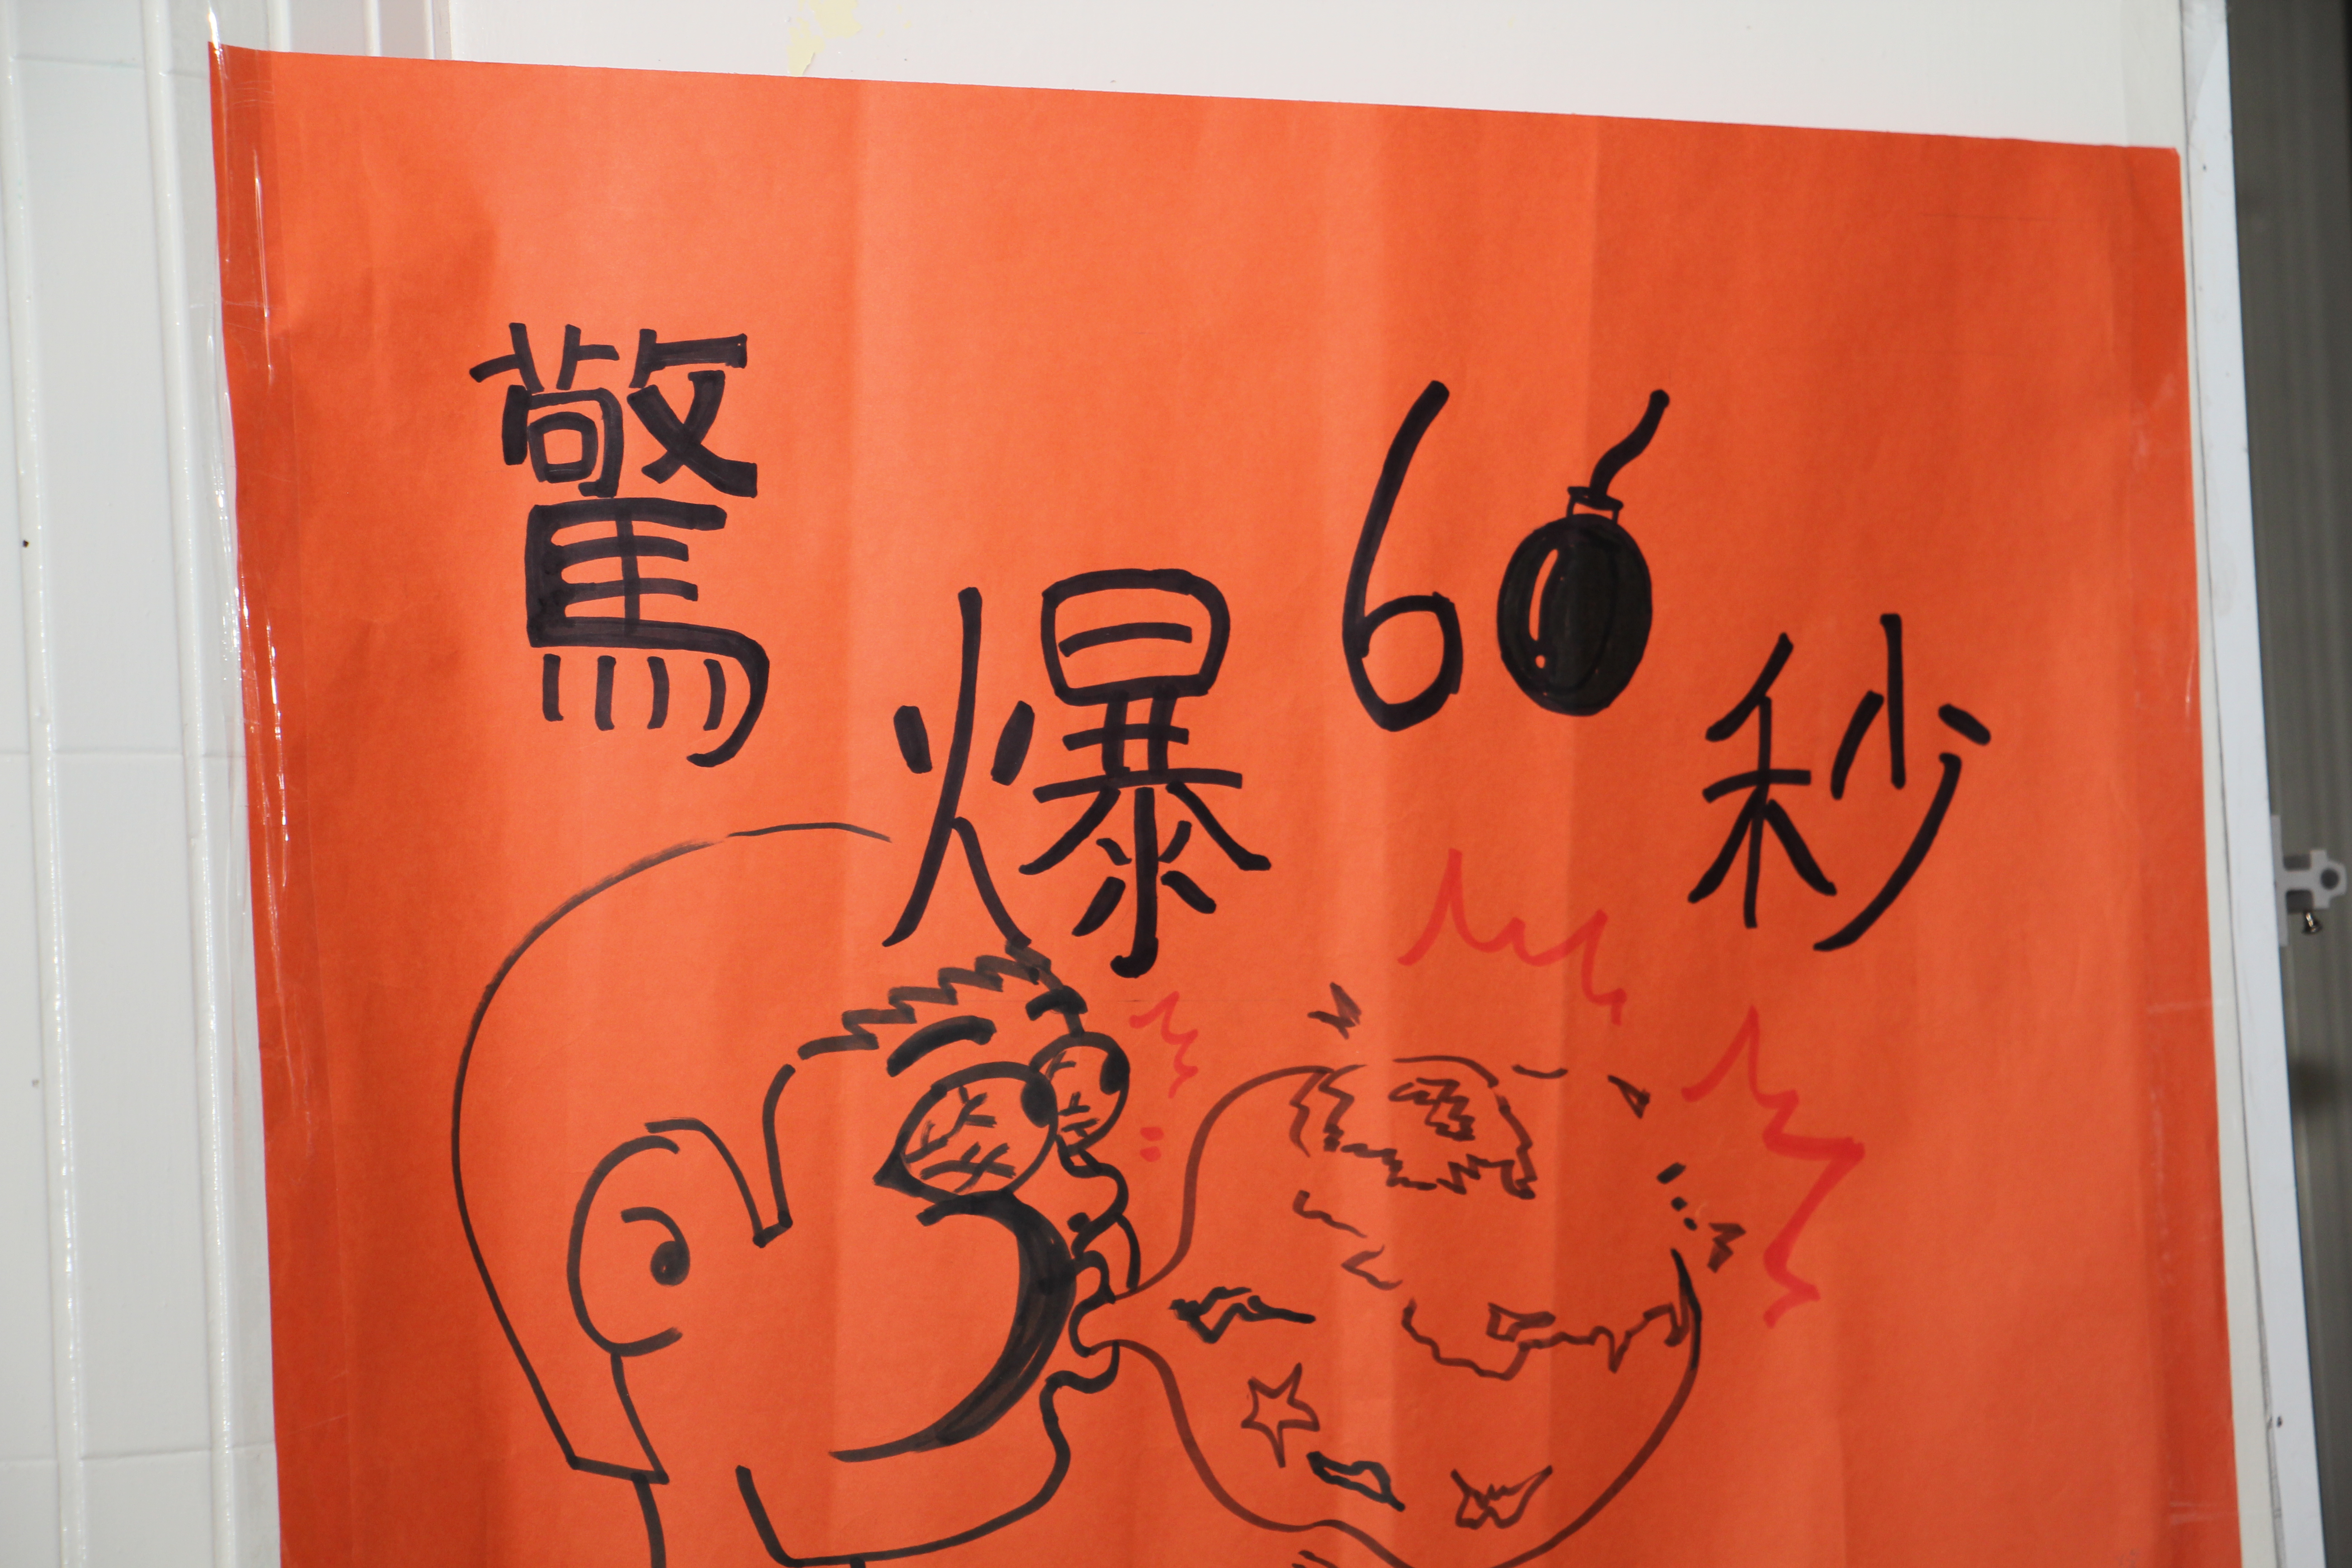 驚爆60秒